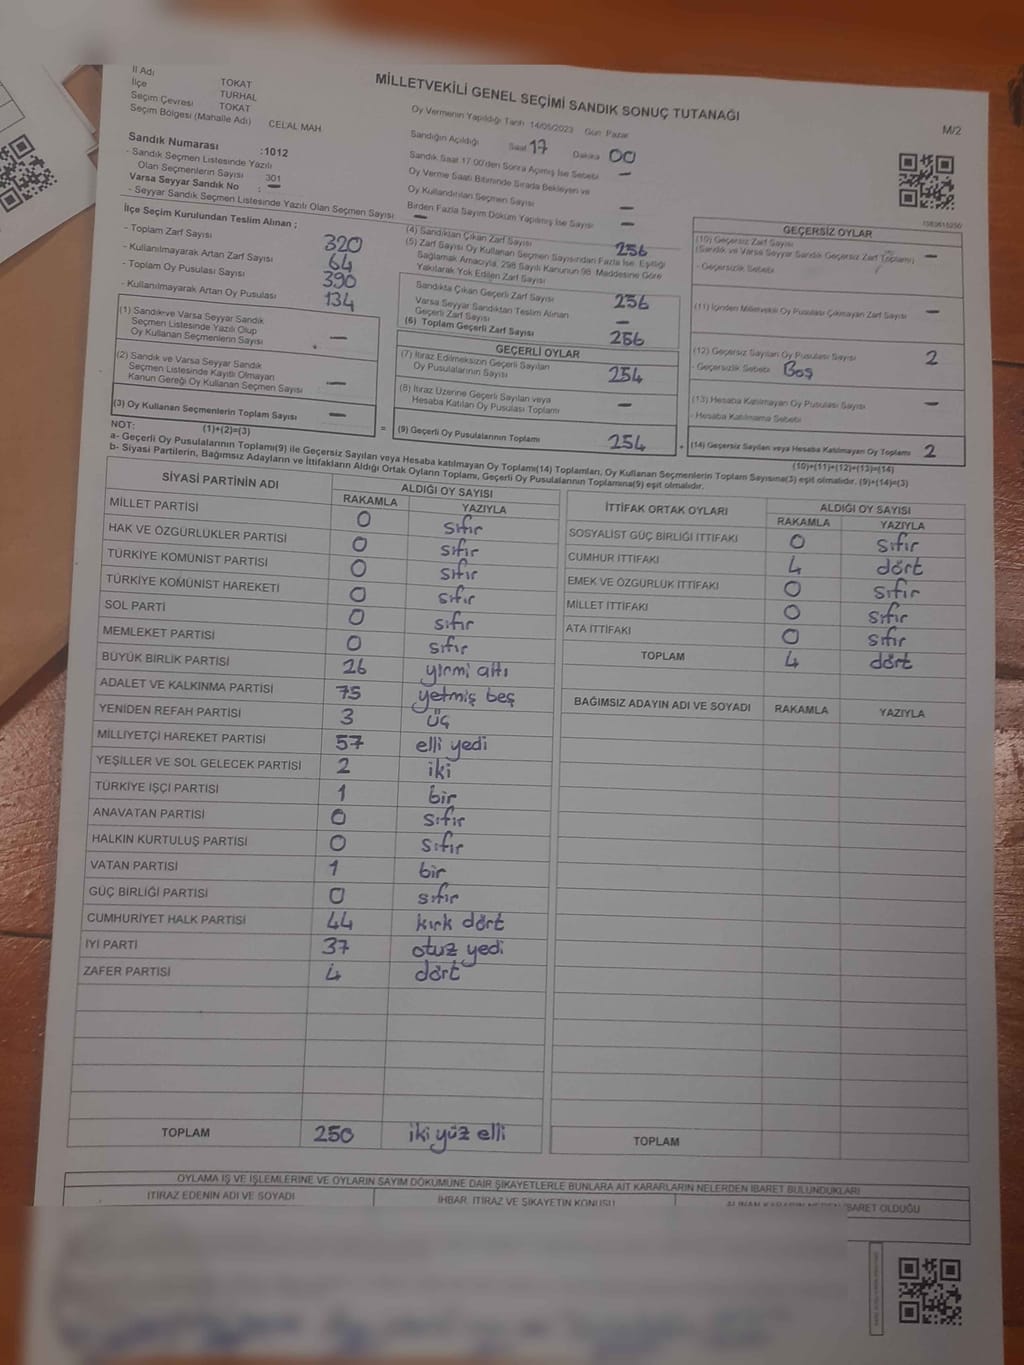 MİLLETVEKİLİ GENEL SEÇİMİ SANDIK SONUÇ TUTANAĞI
M/2
İl Adı TOKAT
İlçe TURHAL
Seçim Çevresi TOKAT
Seçim Bölgesi (Mahalle Adı) CELAL MAH
Sandık Numarası :1012
- Sandık Seçmen Listesinde Yazılı
Olan Seçmenlerin Sayısı 301
Varsa Seyyar Sandık No : —
- Seyyar Sandık Seçmen Listesinde Yazılı Olan Seçmen Sayısı —
Oy Vermenin Yapıldığı Tarih 14/05/2023 Gün: Pazar
Sandığın Açıldığı Saat 17 Dakika 00
Sandık Saat 17.00'den Sonra Açılmış İse Sebebi —
Oy Verme Saati Bitiminde Sırada Bekleyen ve
Oy Kullandırılan Seçmen Sayısı —
Birden Fazla Sayım Döküm Yapılmış İse Sayısı —
İlçe Seçim Kurulundan Teslim Alınan ;
- Toplam Zarf Sayısı 320
- Kullanılmayarak Artan Zarf Sayısı 64
- Toplam Oy Pusulası Sayısı 390
- Kullanılmayarak Artan Oy Pusulası 134
(1) Sandık ve Varsa Seyyar Sandık
Seçmen Listesinde Yazılı Olup
Oy Kullanan Seçmenlerin Sayısı —
(2) Sandık ve Varsa Seyyar Sandık
Seçmen Listesinde Kayıtlı Olmayan
Kanun Gereği Oy Kullanan Seçmen Sayısı —
(3) Oy Kullanan Seçmenlerin Toplam Sayısı —
(1)+(2)=(3)
(4) Sandıktan Çıkan Zarf Sayısı 256
(5) Zarf Sayısı Oy Kullanan Seçmen Sayısından Fazla İse, Eşitliği
Sağlamak Amacıyla, 298 Sayılı Kanunun 98. Maddesine Göre
Yakılarak Yok Edilen Zarf Sayısı
Sandıkta Çıkan Geçerli Zarf Sayısı 256
Varsa Seyyar Sandıktan Teslim Alınan
Geçerli Zarf Sayısı —
(6) Toplam Geçerli Zarf Sayısı 256
GEÇERLİ OYLAR
(7) İtiraz Edilmeksizin Geçerli Sayılan
Oy Pusulalarının Sayısı 254
(8) İtiraz Üzerine Geçerli Sayılan veya
Hesaba Katılan Oy Pusulası Toplamı —
= (9) Geçerli Oy Pusulalarının Toplamı 254 +
GEÇERSİZ OYLAR
(10) Geçersiz Zarf Sayısı
(Sandık ve Varsa Seyyar Sandık Geçersiz Zarf Toplamı) —
- Geçersizlik Sebebi
(11) İçinden Milletvekili Oy Pusulası Çıkmayan Zarf Sayısı —
(12) Geçersiz Sayılan Oy Pusulası Sayısı 2
- Geçersizlik Sebebi Boş
(13) Hesaba Katılmayan Oy Pusulası Sayısı —
- Hesaba Katılmama Sebebi
(14) Geçersiz Sayılan veya Hesaba Katılmayan Oy Toplamı 2
(10)+(11)+(12)+(13)=(14)
NOT:
a- Geçerli Oy Pusulalarının Toplamı(9) ile Geçersiz Sayılan veya Hesaba katılmayan Oy Toplamı(14) Toplamları, Oy Kullanan Seçmenlerin Toplam Sayısına(3) eşit olmalıdır. (9)+(14)=(3)
b- Siyasi Partilerin, Bağımsız Adayların ve İttifakların Aldığı Ortak Oyların Toplamı, Geçerli Oy Pusulalarının Toplamına(9) eşit olmalıdır.
SİYASİ PARTİNİN ADI ALDIĞI OY SAYISI
RAKAMLA YAZIYLA
MİLLET PARTİSİ 0 sıfır
HAK VE ÖZGÜRLÜKLER PARTİSİ 0 sıfır
TÜRKİYE KOMÜNİST PARTİSİ 0 sıfır
TÜRKİYE KOMÜNİST HAREKETİ 0 sıfır
SOL PARTİ 0 sıfır
MEMLEKET PARTİSİ 0 sıfır
BÜYÜK BİRLİK PARTİSİ 26 yirmi altı
ADALET VE KALKINMA PARTİSİ 75 yetmiş beş
YENİDEN REFAH PARTİSİ 3 üç
MİLLİYETÇİ HAREKET PARTİSİ 57 elli yedi
YEŞİLLER VE SOL GELECEK PARTİSİ 2 iki
TÜRKİYE İŞÇİ PARTİSİ 1 bir
ANAVATAN PARTİSİ 0 sıfır
HALKIN KURTULUŞ PARTİSİ 0 sıfır
VATAN PARTİSİ 1 bir
GÜÇ BİRLİĞİ PARTİSİ 0 sıfır
CUMHURİYET HALK PARTİSİ 44 kırk dört
İYİ PARTİ 37 otuz yedi
ZAFER PARTİSİ 4 dört
TOPLAM 250 iki yüz elli
İTTİFAK ORTAK OYLARI ALDIĞI OY SAYISI
RAKAMLA YAZIYLA
SOSYALİST GÜÇ BİRLİĞİ İTTİFAKI 0 sıfır
CUMHUR İTTİFAKI 4 dört
EMEK VE ÖZGÜRLÜK İTTİFAKI 0 sıfır
MİLLET İTTİFAKI 0 sıfır
ATA İTTİFAKI 0 sıfır
TOPLAM 4 dört
BAĞIMSIZ ADAYIN ADI VE SOYADI RAKAMLA YAZIYLA
TOPLAM
OYLAMA İŞ VE İŞLEMLERİNE VE OYLARIN SAYIM DÖKÜMÜNE DAİR ŞİKAYETLERLE BUNLARA AİT KARARLARIN NELERDEN İBARET BULUNDUKLARI
İTİRAZ EDENİN ADI VE SOYADI İHBAR, İTİRAZ VE ŞİKAYETİN KONUSU